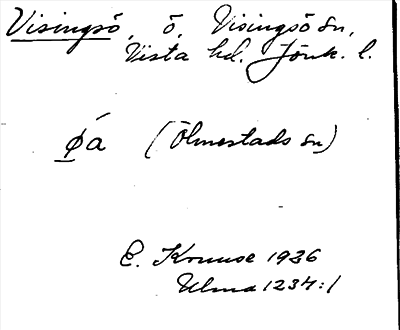 Visingsö, ö, Visingsö sn,
Vista hd. Jönk. l.
øá (Ölmestads sn)
E. Kruuse 1936
Ulma 1234:1